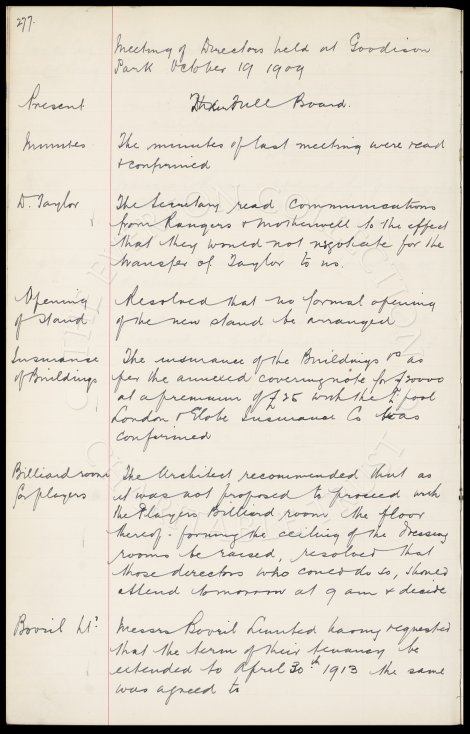 277.
Meeting of Directors held at Goodison
Park October 19 1909
Present Full Board.
Minutes The minutes of last meeting were read
& confirmed
D. Taylor The Secretary read communications
from Rangers & Motherwell to the effect
that they would not negotiate for the
transfer of Taylor to us.
Opening Resolved that no formal opening
of Stand of the new stand be arranged
Insurance The insurance of the Buildings &c as
of Buildings per the annexed covering note for £20000
at a premium of £25 with the L'pool
London & Globe Insurance Co was
confirmed
Billiard room The Architect recommended that as
for players it was not proposed to proceed with
the Players Billiard room the floor
thereof forming the ceiling of the dressing
rooms be raised, resolved that
those directors who could do so, should
attend tomorrow at 9 am & decide
Bovril Ltd Messrs Bovril Limited having requested
that the term of their tenancy be
extended to April 30th 1913 the same
was agreed to